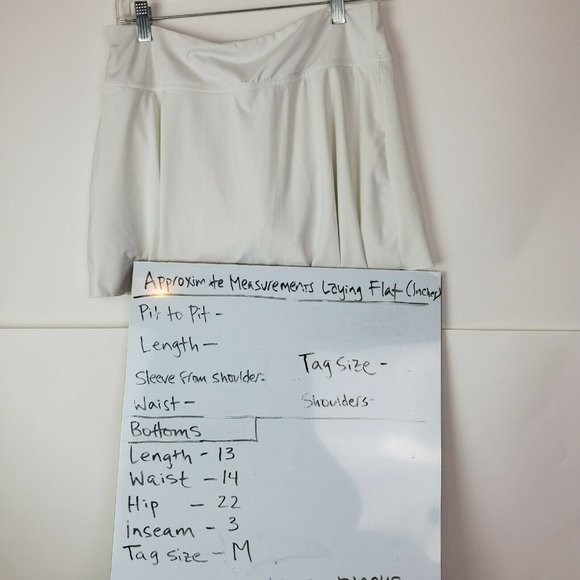 Approximate Measurements Laying Flat (Inches)
Pit to Pit -
Length -
Sleeve From Shoulder -
Tag Size -
Waist -
Shoulders -
Bottoms
Length - 13
Waist - 14
Hip - 22
inseam - 3
Tag size - M